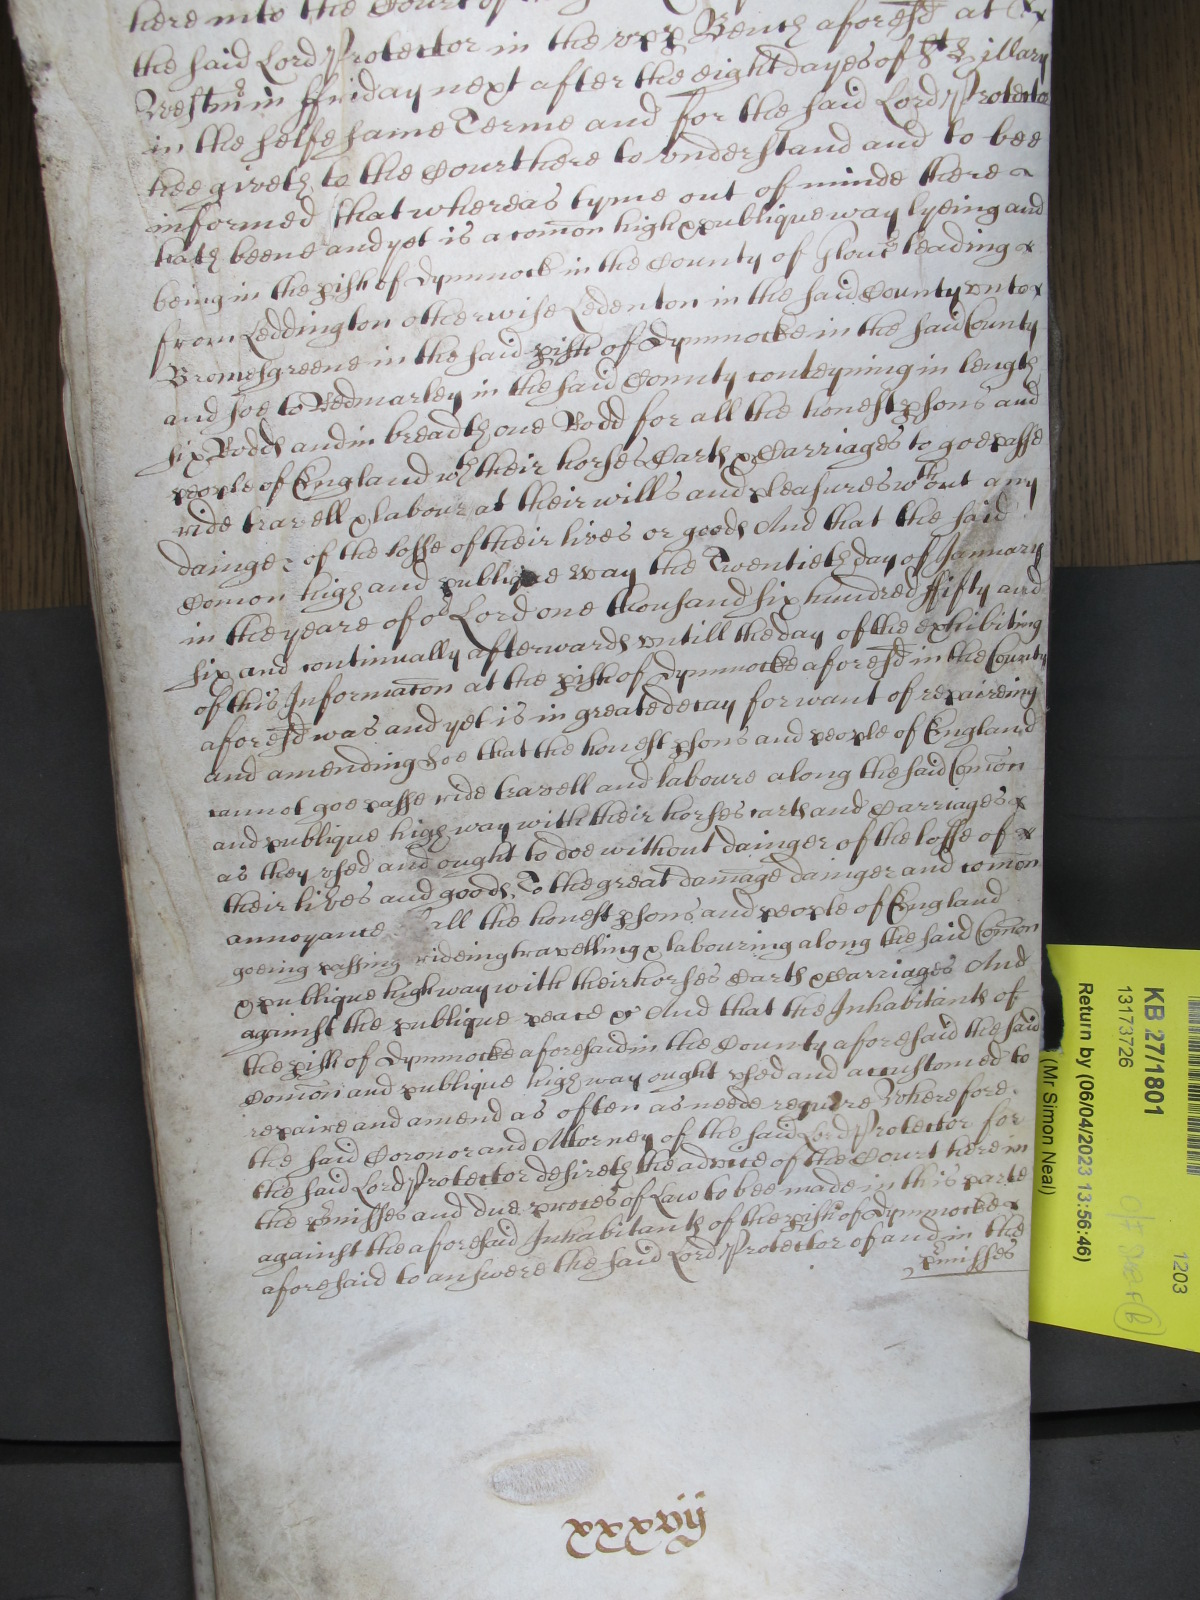 here into the Court of
the said Lord Protector in the upp Bench aforesd at
Westmr in ffriday next after the eight dayes of St Hillary
in the selfe same Terme and for the said Lord Protector
hee giveth to the Court here to understand and to bee
informed that whereas tyme out of minde there
hath beene and yet is a comon high & publique way lyeing and
being in the pish of Dymmock in the County of Glouc leading
from Leddington otherwise Ledenton in the said County unto
Bromesgreene in the said pish of Dymmocke in the said County
and soe to Redmarley in the said County conteyning in length
six Rodds and in breadth one Rodd for all the honest psons and
people of England wth their horses Carts & Carriages to goe passe
ride travell & labour at their wills and pleasures wthout any
dainger of the losse of their lives or goods And that the said
Comon high and publique way the Twentieth day of January
in the yeare of or Lord one thousand six hundred fifty and
six and continually afterwards untill the day of the exhibiting
of this Informacon at the pish of Dymmocke aforesd in the County
aforesd was and yet is in greate decay for want of repaireing
and amending Soe that the honest psons and people of England
cannot goe passe ride travell and laboure along the said Comon
and publique high way with their horses carts and Carriages
as they used and ought to doe without dainger of the losse of
their lives and goods To the great damage dainger and comon
annoyance all the honest psons and people of England
goeing passing rideing travelling & labouring along the said Comon
& publique high way with their horses Carts & Carriages And
against the publique peace &c And that the Inhabitants of
the pish of Dymmocke aforesaid in the County aforesaid the said
Comon and publique high way ought used and accustomed to
repaire and amend as often as neede require Wherefore
the said Coronor and Attorney of the said Lord Protector for
the said Lord Protector desireth the advice of the Court here in
the pmisses and due proces of Law to bee made in this parte
against the aforesaid Inhabitants of the pish of Dymmocke
aforesaid to answere the said Lord Protector of and in the
pmisses
xxxxvij
KB 27/1801
13173726
1203
Return by (06/04/2023 13:56:46)
(Mr Simon Neal)